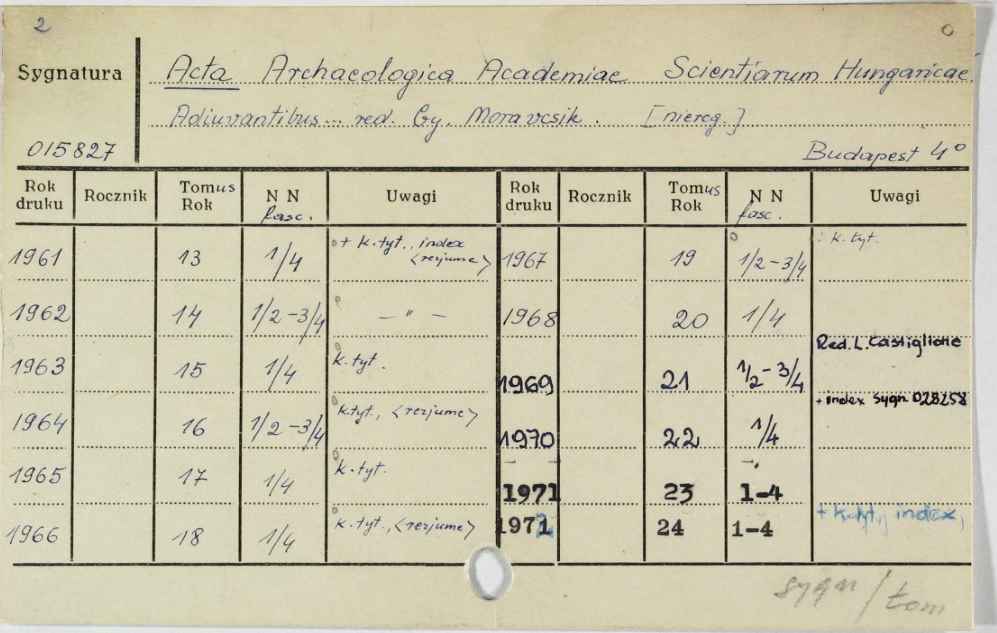 2 0
Sygnatura Acta Archaeologica Academiae Scientiarum Hungaricae.
Adiuvantibus... red. Gy. Moravcsik. [niereg.]
015827 Budapest 4°
Rok druku Rocznik Tomus Rok N N fasc. Uwagi Rok druku Rocznik Tomus Rok N N fasc. Uwagi
1961 13 1/4 + k.tyt., index <rezjume> 1967 19 1/2-3/4 k.tyt.
1962 14 1/2-3/4 — " — 1968 20 1/4
Red. L. Castiglione
1963 15 1/4 k.tyt. 1969 21 1/2-3/4
+ index sygn 028258
1964 16 1/2-3/4 k.tyt., <rezjume> 1970 22 1/4
1965 17 1/4 k.tyt. 1971 23 1-4
1966 18 1/4 k.tyt., <rezjume> 1972 24 1-4 + k.tyt., index,
sygn/tom